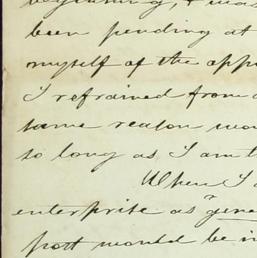 beginning, I was
been pending at
myself of the app
I refrained from a
same reason wou
so long as I am t
When I a
enterprise as "gene
port would be in